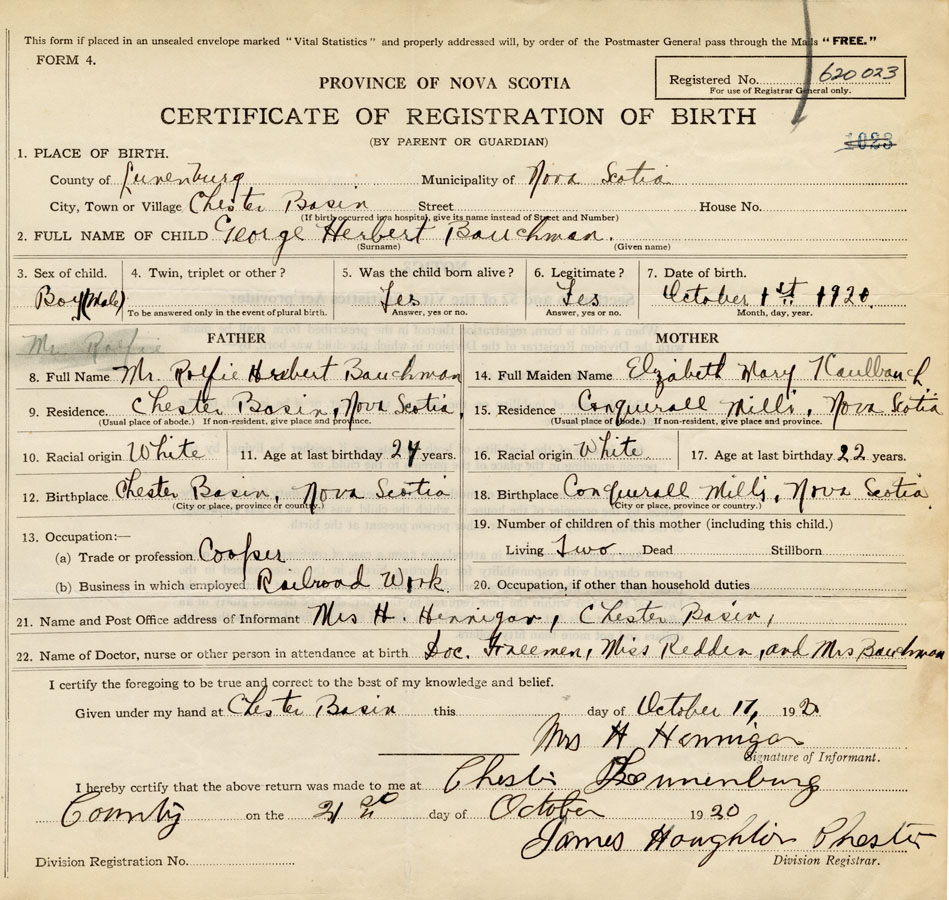 This form if placed in an unsealed envelope marked "Vital Statistics" and properly addressed will, by order of the Postmaster General pass through the Mails "FREE."
FORM 4.
PROVINCE OF NOVA SCOTIA
Registered No. 620023
For use of Registrar General only.
CERTIFICATE OF REGISTRATION OF BIRTH
(BY PARENT OR GUARDIAN)
1023
1. PLACE OF BIRTH.
County of Lunenburg Municipality of Nova Scotia
City, Town or Village Chester Basin Street House No.
(If birth occurred in a hospital, give its name instead of Street and Number)
2. FULL NAME OF CHILD George Herbert Bauchman.
(Surname) (Given name)
3. Sex of child. 4. Twin, triplet or other? 5. Was the child born alive? 6. Legitimate? 7. Date of birth.
Boy (Male) Yes Yes October 1st 1920.
To be answered only in the event of plural birth. Answer, yes or no. Answer, yes or no. Month, day, year.
Mr. Rolfie
FATHER MOTHER
8. Full Name Mr. Rolfie Herbert Bauchman 14. Full Maiden Name Elizabeth Mary Kaulbauch.
9. Residence. Chester Basin, Nova Scotia, 15. Residence Conquerall Mills, Nova Scotia
(Usual place of abode.) If non-resident, give place and province. (Usual place of abode.) If non-resident, give place and province.
10. Racial origin White 11. Age at last birthday 24 years. 16. Racial origin White. 17. Age at last birthday 22 years.
12. Birthplace Chester Basin, Nova Scotia 18. Birthplace Conquerall Mills, Nova Scotia.
(City or place, province or country.) (City or place, province or country.)
13. Occupation:— 19. Number of children of this mother (including this child.)
(a) Trade or profession. Cooper Living Two Dead Stillborn
(b) Business in which employed Railroad Work. 20. Occupation, if other than household duties
21. Name and Post Office address of Informant Mrs H. Hennigar, Chester Basin,
22. Name of Doctor, nurse or other person in attendance at birth Doc. Freemen, Miss Redden, and Mrs Bauchman
I certify the foregoing to be true and correct to the best of my knowledge and belief.
Given under my hand at Chester Basin this day of October 17, 1920.
Mrs H Hennigar
Signature of Informant.
I hereby certify that the above return was made to me at Chester Lunnenburg
County on the 21 day of October 1920
James Houghton Chester
Division Registration No. Division Registrar.